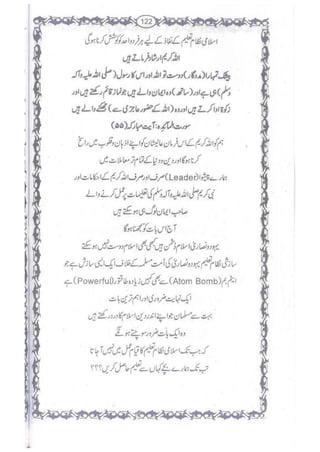 122
اسلامی نظام تعلیم کے نفاذ کے لیے ہر فرد واحد کو کوشش کرنا ہوگی
اللہ کریم ارشاد فرماتے ہیں
بیشک تمہارا (مددگار) دوست تو اللہ اور اس کا رسول (صلی اللہ علیہ وآلہ
وسلم) ہی ہے اور (ساتھ) وہ ایمان والے ہیں جو نماز قائم رکھتے ہیں اور
زکوٰۃ ادا کرتے ہیں اور وہ (اللہ کے حضور عاجزی سے) جھکنے والے ہیں
سورت المائدہ: آیت مبارکہ (۵۵)
ہم کو اللہ کریم کے اس فرمان عالیشان کو اپنے اذہان و قلوب میں راسخ
کرنا ہوگا اور دین و دنیا کے تمام تر معاملات میں
ہمارے پیشوا (Leader) صرف اور صرف اللہ کریم کے احکامات اور
نبی کریم صلی اللہ علیہ وآلہ وسلم کی تعلیمات پر عمل کرنے والے
صاحب ایمان لوگ ہی ہو سکتے ہیں
آج اس بات کو سمجھنا ہوگا
یہود و نصاریٰ اسلام دشمن ہیں کبھی بھی اسلام دوست نہیں ہو سکتے
سازشی نظام تعلیم یہود و نصاریٰ کی امت مسلمہ کے خلاف ایک ایسی سازش ہے جو
ایٹم بم (Atom Bomb) سے بھی کہیں زیادہ طاقتور (Powerful) ہے
ایک نہایت ضروری اور اہم ترین بات
بہت سے مسلمان جو اپنے اندر دین اسلام کا درد رکھتے ہیں
وہ ایک بات ضرور سوچتے ہونگے
کہ جب تک اسلامی نظام تعلیم کا قیام عمل میں نہیں آ جاتا
تب تک ہمارے بچے کہاں سے تعلیم حاصل کریں؟؟؟